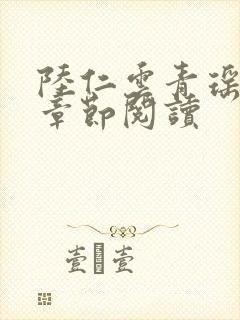 陸仁雲青瑤
章節閱讀
壹 壹